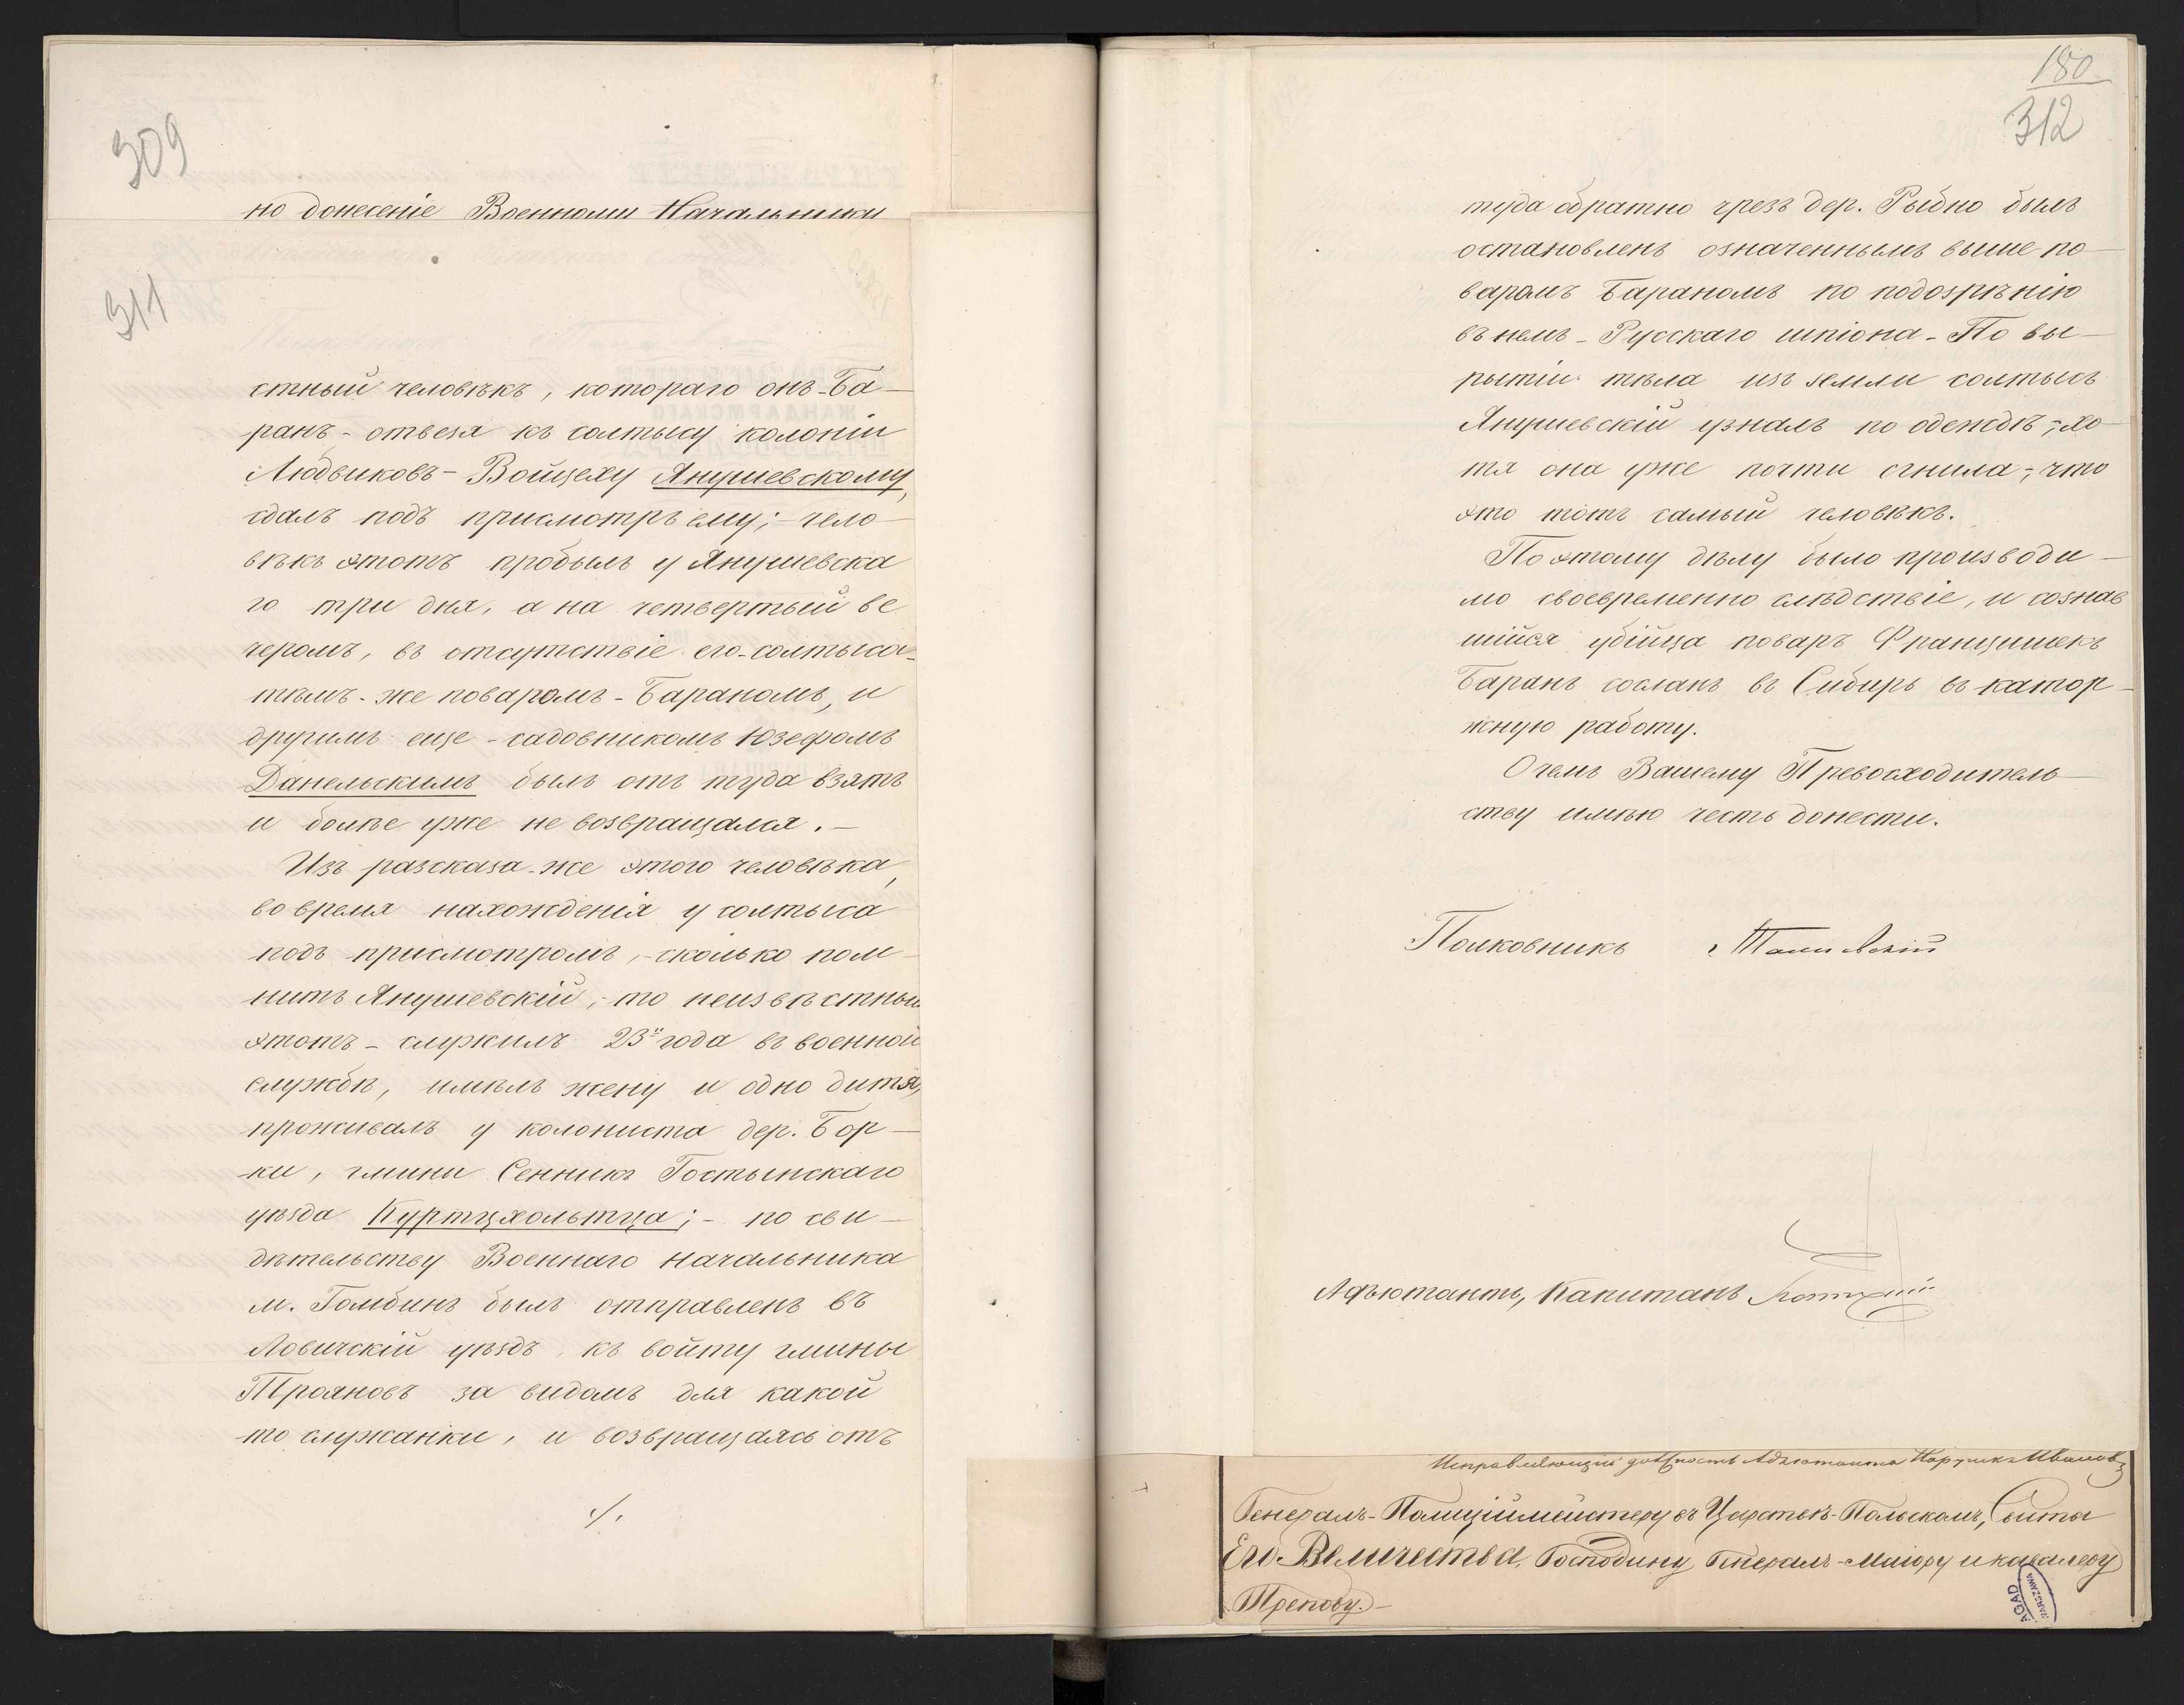 309
но донесеніе Военнаго Начальника
311
стный человѣкъ, котораго онъ - Ба-
ранъ - отвезя къ солтысу колоніи
Людвиковъ - Войцеху Янушевскому,
сдалъ подъ присмотръ ему; - чело-
вѣкъ этотъ пробылъ у Янушевска
го три дня, а на четвертый ве
черомъ, въ отсутствіе его - солтыса -
тѣмъ - же поваромъ - Бараномъ, и
другимъ еще - садовникомъ Юзефомъ
Данельскимъ былъ отъ туда взятъ
и болѣе уже не возвращался. -
Изъ разсказа - же этого человѣка,
во время нахожденія у солтыса
подъ присмотромъ, - сколько пом-
нитъ Янушевскій, - то неизвѣстный
этотъ - служилъ 23 года въ военной
службѣ, имѣлъ жену и одно дитя,
проживалъ у колониста дер. Бор-
ки, гмины Сенникъ Гостынскаго
уѣзда Куртцхольтца; - по сви-
дѣтельству Военнаго Начальника
м. Гомбинъ былъ отправленъ въ
Ловичскій уѣздъ къ войту гмины
Трояновъ за видомъ для какой
то служанки, и возвращаясь отъ
./.
180
312
туда обратно чрезъ дер. Рыбно былъ
остановленъ означеннымъ выше по-
варомъ Бараномъ по подозрѣнію
въ немъ - Русскаго шпіона - По вы-
рытіи тѣла изъ земли солтысъ
Янушевскій узналъ по одеждѣ, - хо-
тя она уже почти сгнила, - что
это тотъ самый человѣкъ.
По этому дѣлу было производи-
мо своевременно слѣдствіе, и сознав
шійся убійца поваръ Францишекъ
Баранъ сосланъ въ Сибирь въ катор-
жную работу.
О чемъ Вашему Превосходитель-
ству имѣю честь донести.
Полковникъ
Адъютантъ, Капитанъ
Исправляющій должность Адъютанта Поручикъ Ивановъ
Генералъ-Полиціймейстеру въ Царствѣ Польскомъ, Свиты
Его Величества, Господину Генералъ-Маіору и кавалеру
Трепову. -
AGAD
WARSZAWA